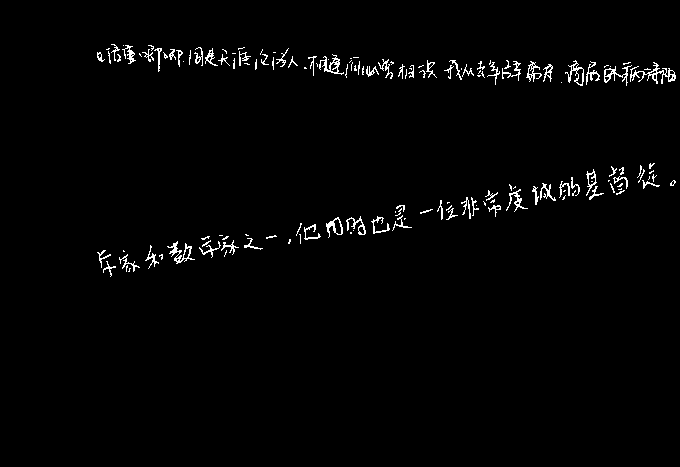 语重唧唧.同是天涯沦落人.相逢何必曾相识 我从去年辞帝京.谪居卧病浔阳
学家和数学家之一,他同时也是一位非常虔诚的基督徒。